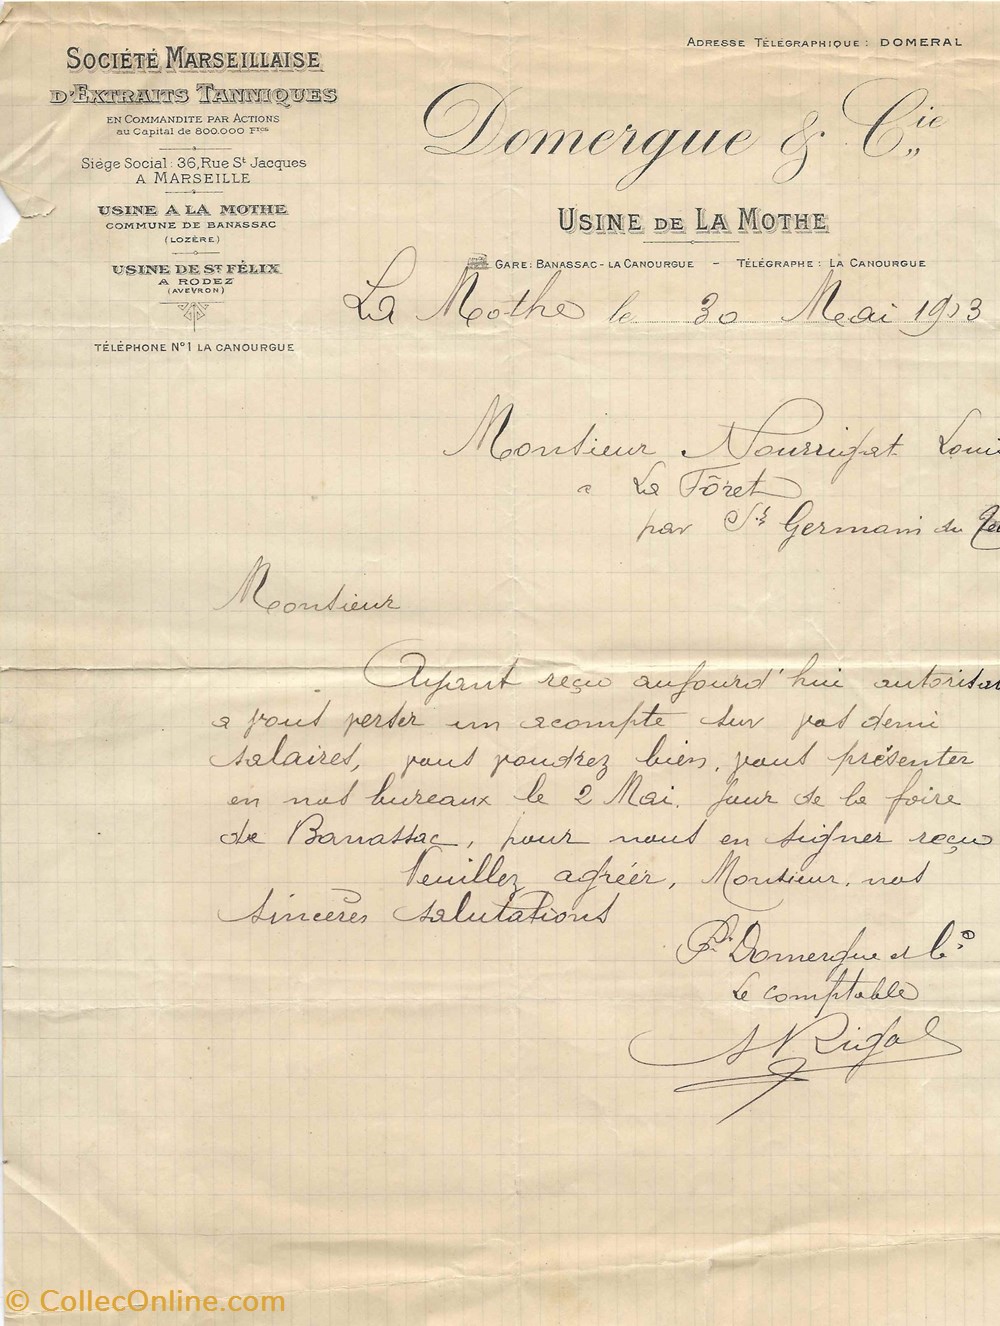 ADRESSE TÉLÉGRAPHIQUE : DOMERAL
SOCIÉTÉ MARSEILLAISE
D'EXTRAITS TANNIQUES
EN COMMANDITE PAR ACTIONS
au Capital de 800.000 Frcs
Siége Social : 36, Rue St Jacques
A MARSEILLE
USINE A LA MOTHE
COMMUNE DE BANASSAC
(LOZÈRE)
USINE DE ST FÉLIX
A RODEZ
(AVEYRON)
TÉLÉPHONE N° 1 LA CANOURGUE
Domergue & Cie
USINE DE LA MOTHE
GARE : BANASSAC - LA CANOURGUE - TÉLÉGRAPHE : LA CANOURGUE
La Mothe le 30 Mai 1913
Monsieur Nourrigat Loui
a La Fôret
par St Germain du
Monsieur
Ayant reçu aujourd'hui autorisat
a vous verser un acompte sur vos demi
salaires, vous voudrez bien, vous présenter
en nos bureaux le 2 Mai. Jour de la foire
de Banassac, pour nous en signer reçu
Veuillez agréér, Monsieur, nos
sincères salutations
Pr Domergue et Cie
Le comptable
A Rigal
© CollecOnline.com